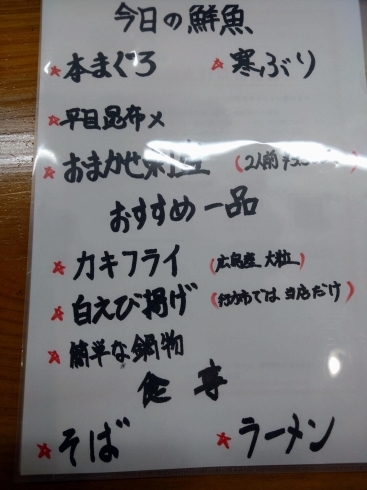 今日の鮮魚
☆本まぐろ ☆寒ぶり
☆平目昆布〆
☆おまかせ (2人前
おすすめ一品
☆カキフライ (広島産 大粒)
☆白えび揚げ (行田市では当店だけ)
☆簡単な鍋物
食事
☆そば ☆ラーメン